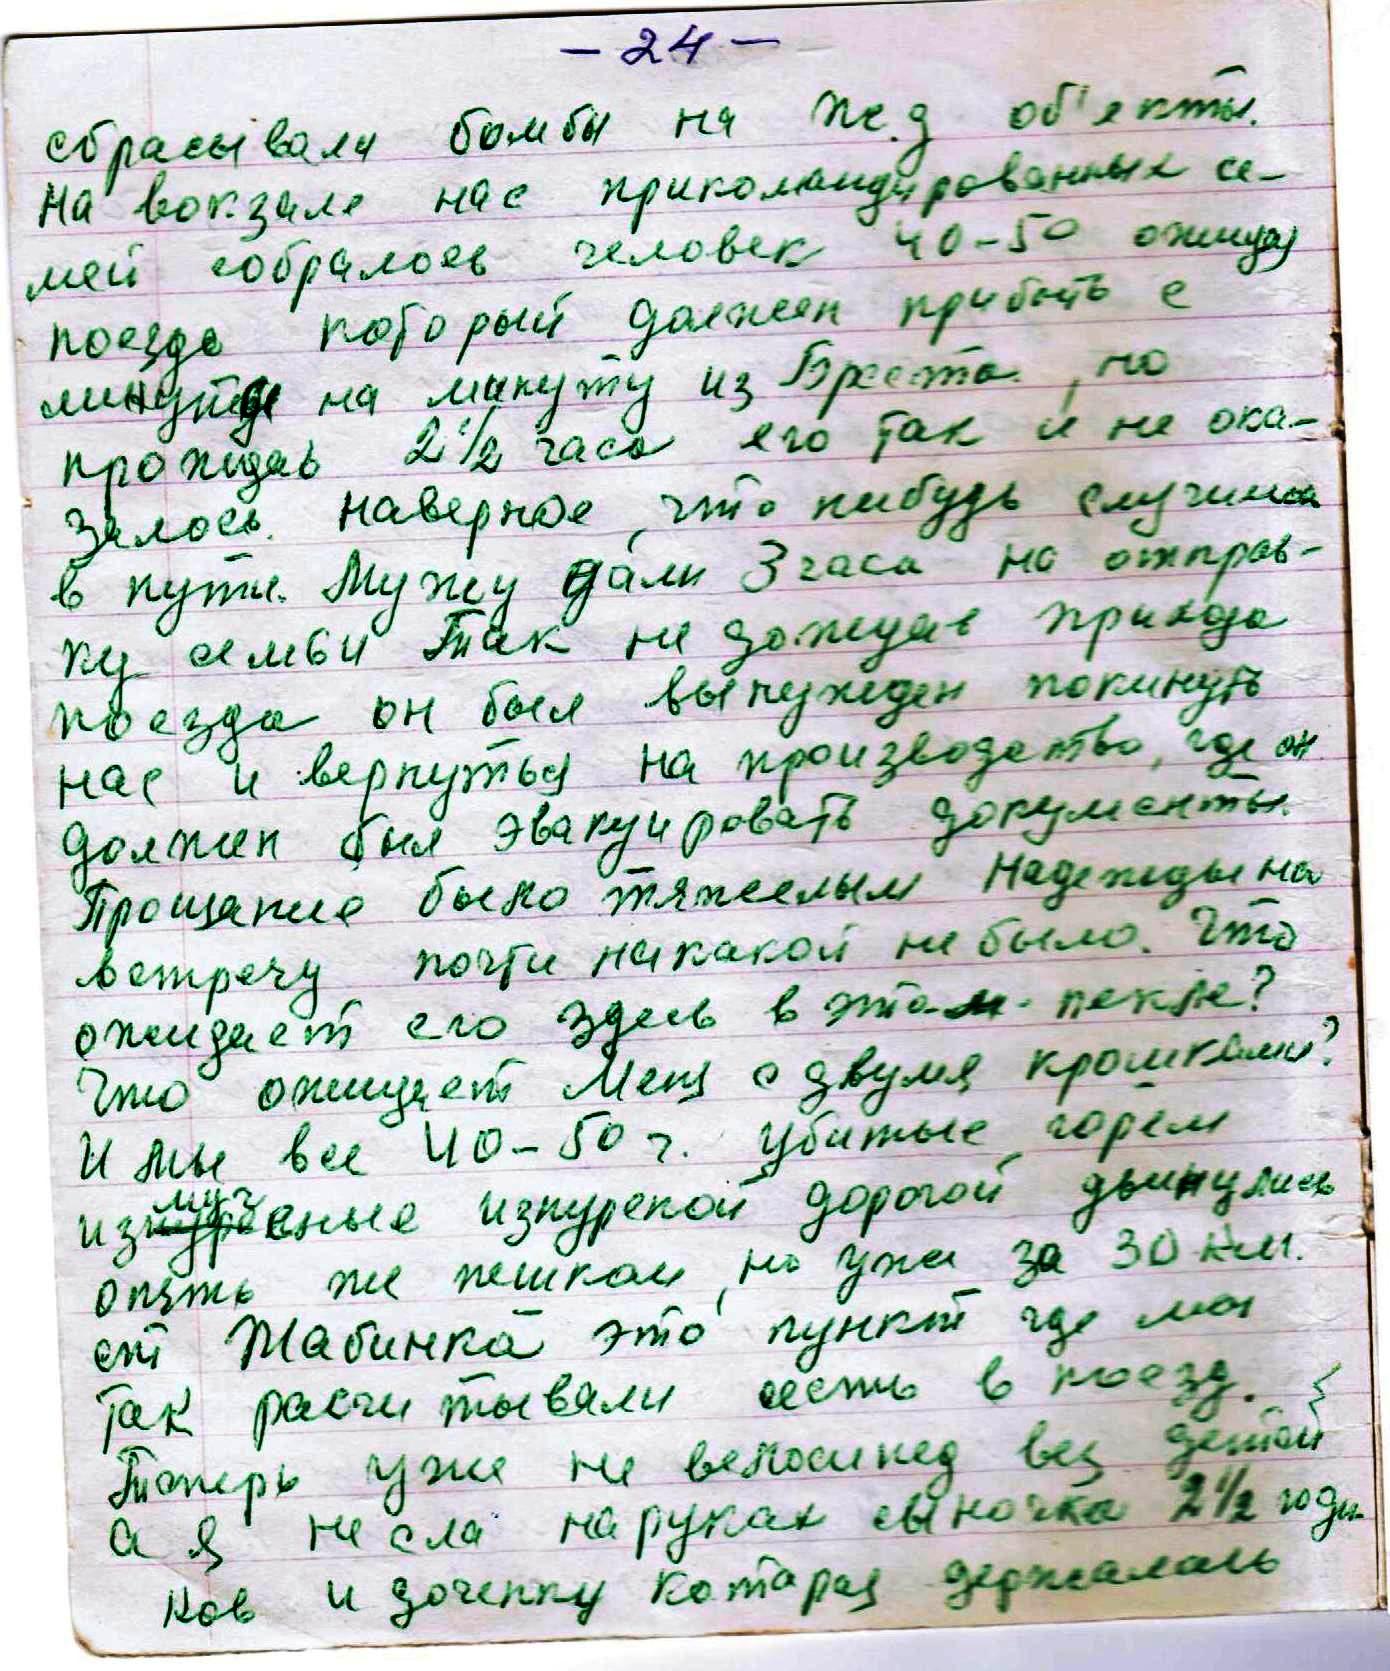 – 24 –
сбрасывали бомбы на ж.д об'екты.
На вокзале нас прикомандированных се-
мей собралось человек 40-50 ожидая
поезда который должен прибыть с
минуты на минуту из Бреста, но
прождав 2 1/2 часа его так и не ока-
залось. наверное, что нибудь случилось
в пути. Мужу дали 3 часа на отправ-
ку семьи Так не дождав прихода
поезда он был вынужден покинуть
нас и вернуться на производство, где он
должен был эвакуировать документы.
Прощание было тяжелым Надежды на
встречу почти никакой не было. Что
ожидает его здесь в этом пекле?
Что ожидает меня с двумя крошками?
И мы все 40-50 ч. убитые горем
измученные изнуреной дорогой двинулись
опять же пешком, но уже за 30 км.
от Жабинка это пункт где мы
так расчитывали сесть в поезд.
Теперь уже не велосипед вез детей
а я несла на руках сыночка 2 1/2 годи-
ков и доченку которая держалась